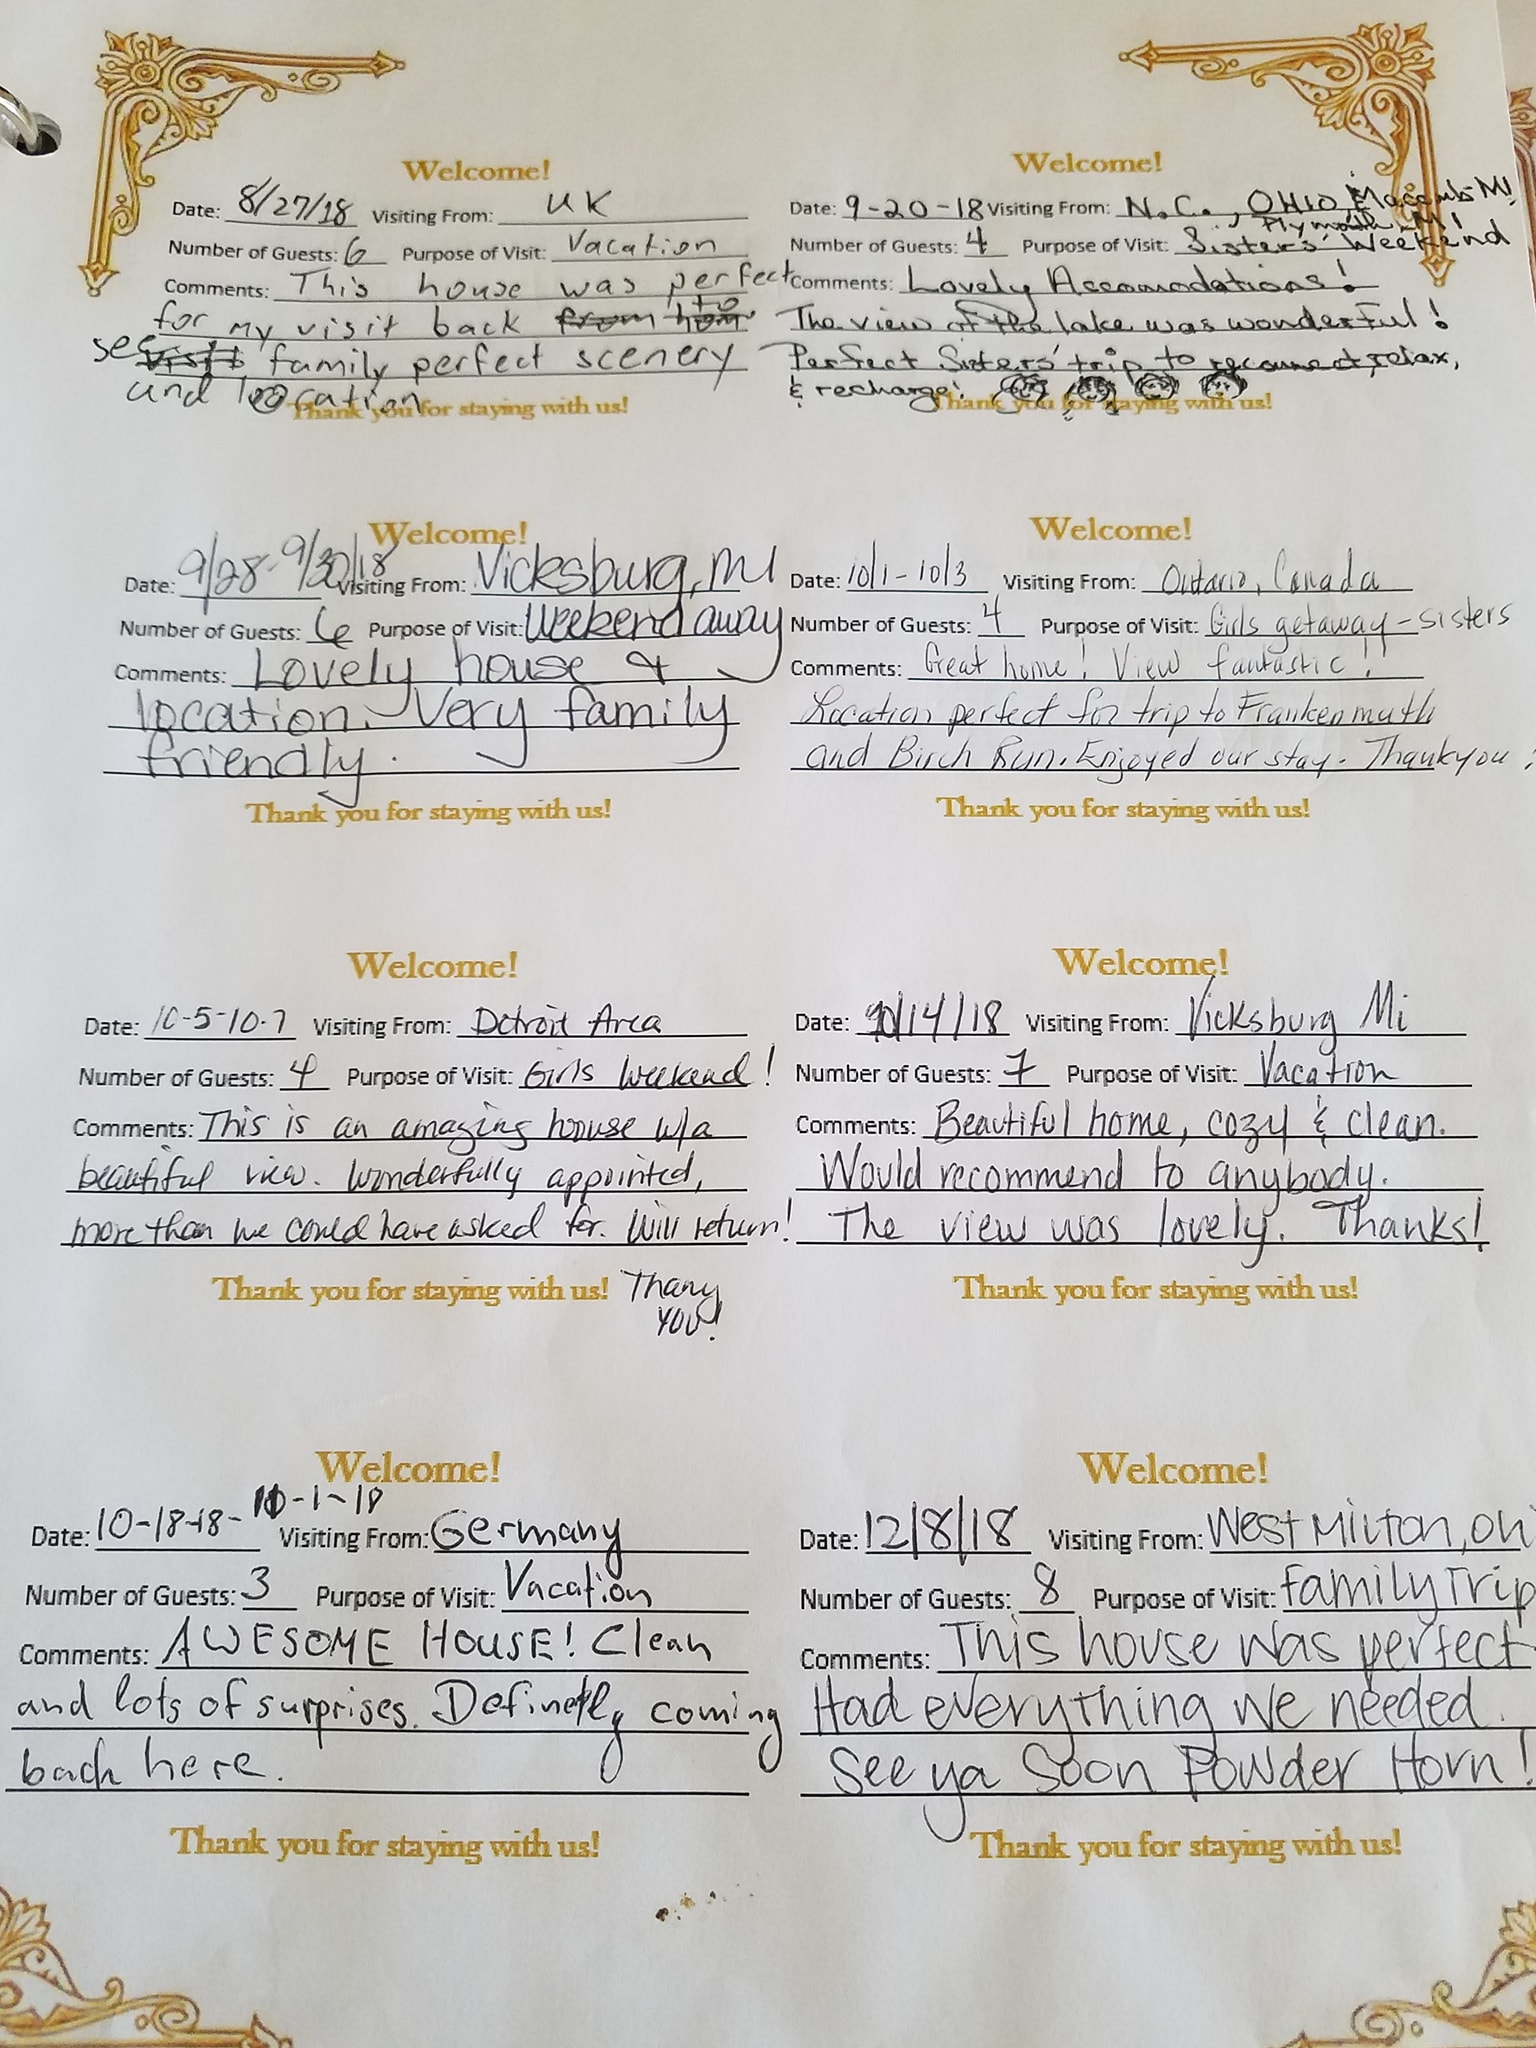 Welcome!
Date: 8/27/18 Visiting From: UK
Number of Guests: 6 Purpose of Visit: Vacation
Comments: This house was perfect
for my visit back from to
see family perfect scenery
and location
Thank you for staying with us!
Welcome!
Date: 9-20-18 Visiting From: N.C., OHIO, Macomb MI
Plymouth, MI
Number of Guests: 4 Purpose of Visit: Sisters' Weekend
Comments: Lovely Accomodations!
The view of the lake was wonderful!
Perfect Sisters' trip to reconnect, relax,
& recharge!
Thank you for staying with us!
Welcome!
Date: 9/28-9/30/18 Visiting From: Vicksburg, MI
Number of Guests: 6 Purpose of Visit: Weekend away
Comments: Lovely house &
location. Very family
friendly.
Thank you for staying with us!
Welcome!
Date: 10/1-10/3 Visiting From: Ontario, Canada
Number of Guests: 4 Purpose of Visit: Girls getaway - sisters
Comments: Great home! View fantastic!
Location perfect for trip to Frankenmuth
and Birch Run. Enjoyed our stay. Thankyou!
Thank you for staying with us!
Welcome!
Date: 10-5-10-7 Visiting From: Detroit Area
Number of Guests: 4 Purpose of Visit: Girls Weekend!
Comments: This is an amazing house w/a
beautiful view. Wonderfully appointed,
more than we could have asked for. Will return!
Thank you for staying with us!
YOU!
Welcome!
Date: 10/14/18 Visiting From: Vicksburg Mi
Number of Guests: 7 Purpose of Visit: Vacation
Comments: Beautiful home, cozy & clean.
Would recommend to anybody.
The view was lovely. Thanks!
Thank you for staying with us!
Welcome!
Date: 10-18-18- -1-18 Visiting From: Germany
Number of Guests: 3 Purpose of Visit: Vacation
Comments: AWESOME HOUSE! Clean
and lots of surprises. Definetly coming
back here.
Thank you for staying with us!
Welcome!
Date: 12/8/18 Visiting From: West Milton, OH
Number of Guests: 8 Purpose of Visit: Family Trip
Comments: This house was perfect
Had everything we needed.
See ya Soon Powder Horn!
Thank you for staying with us!